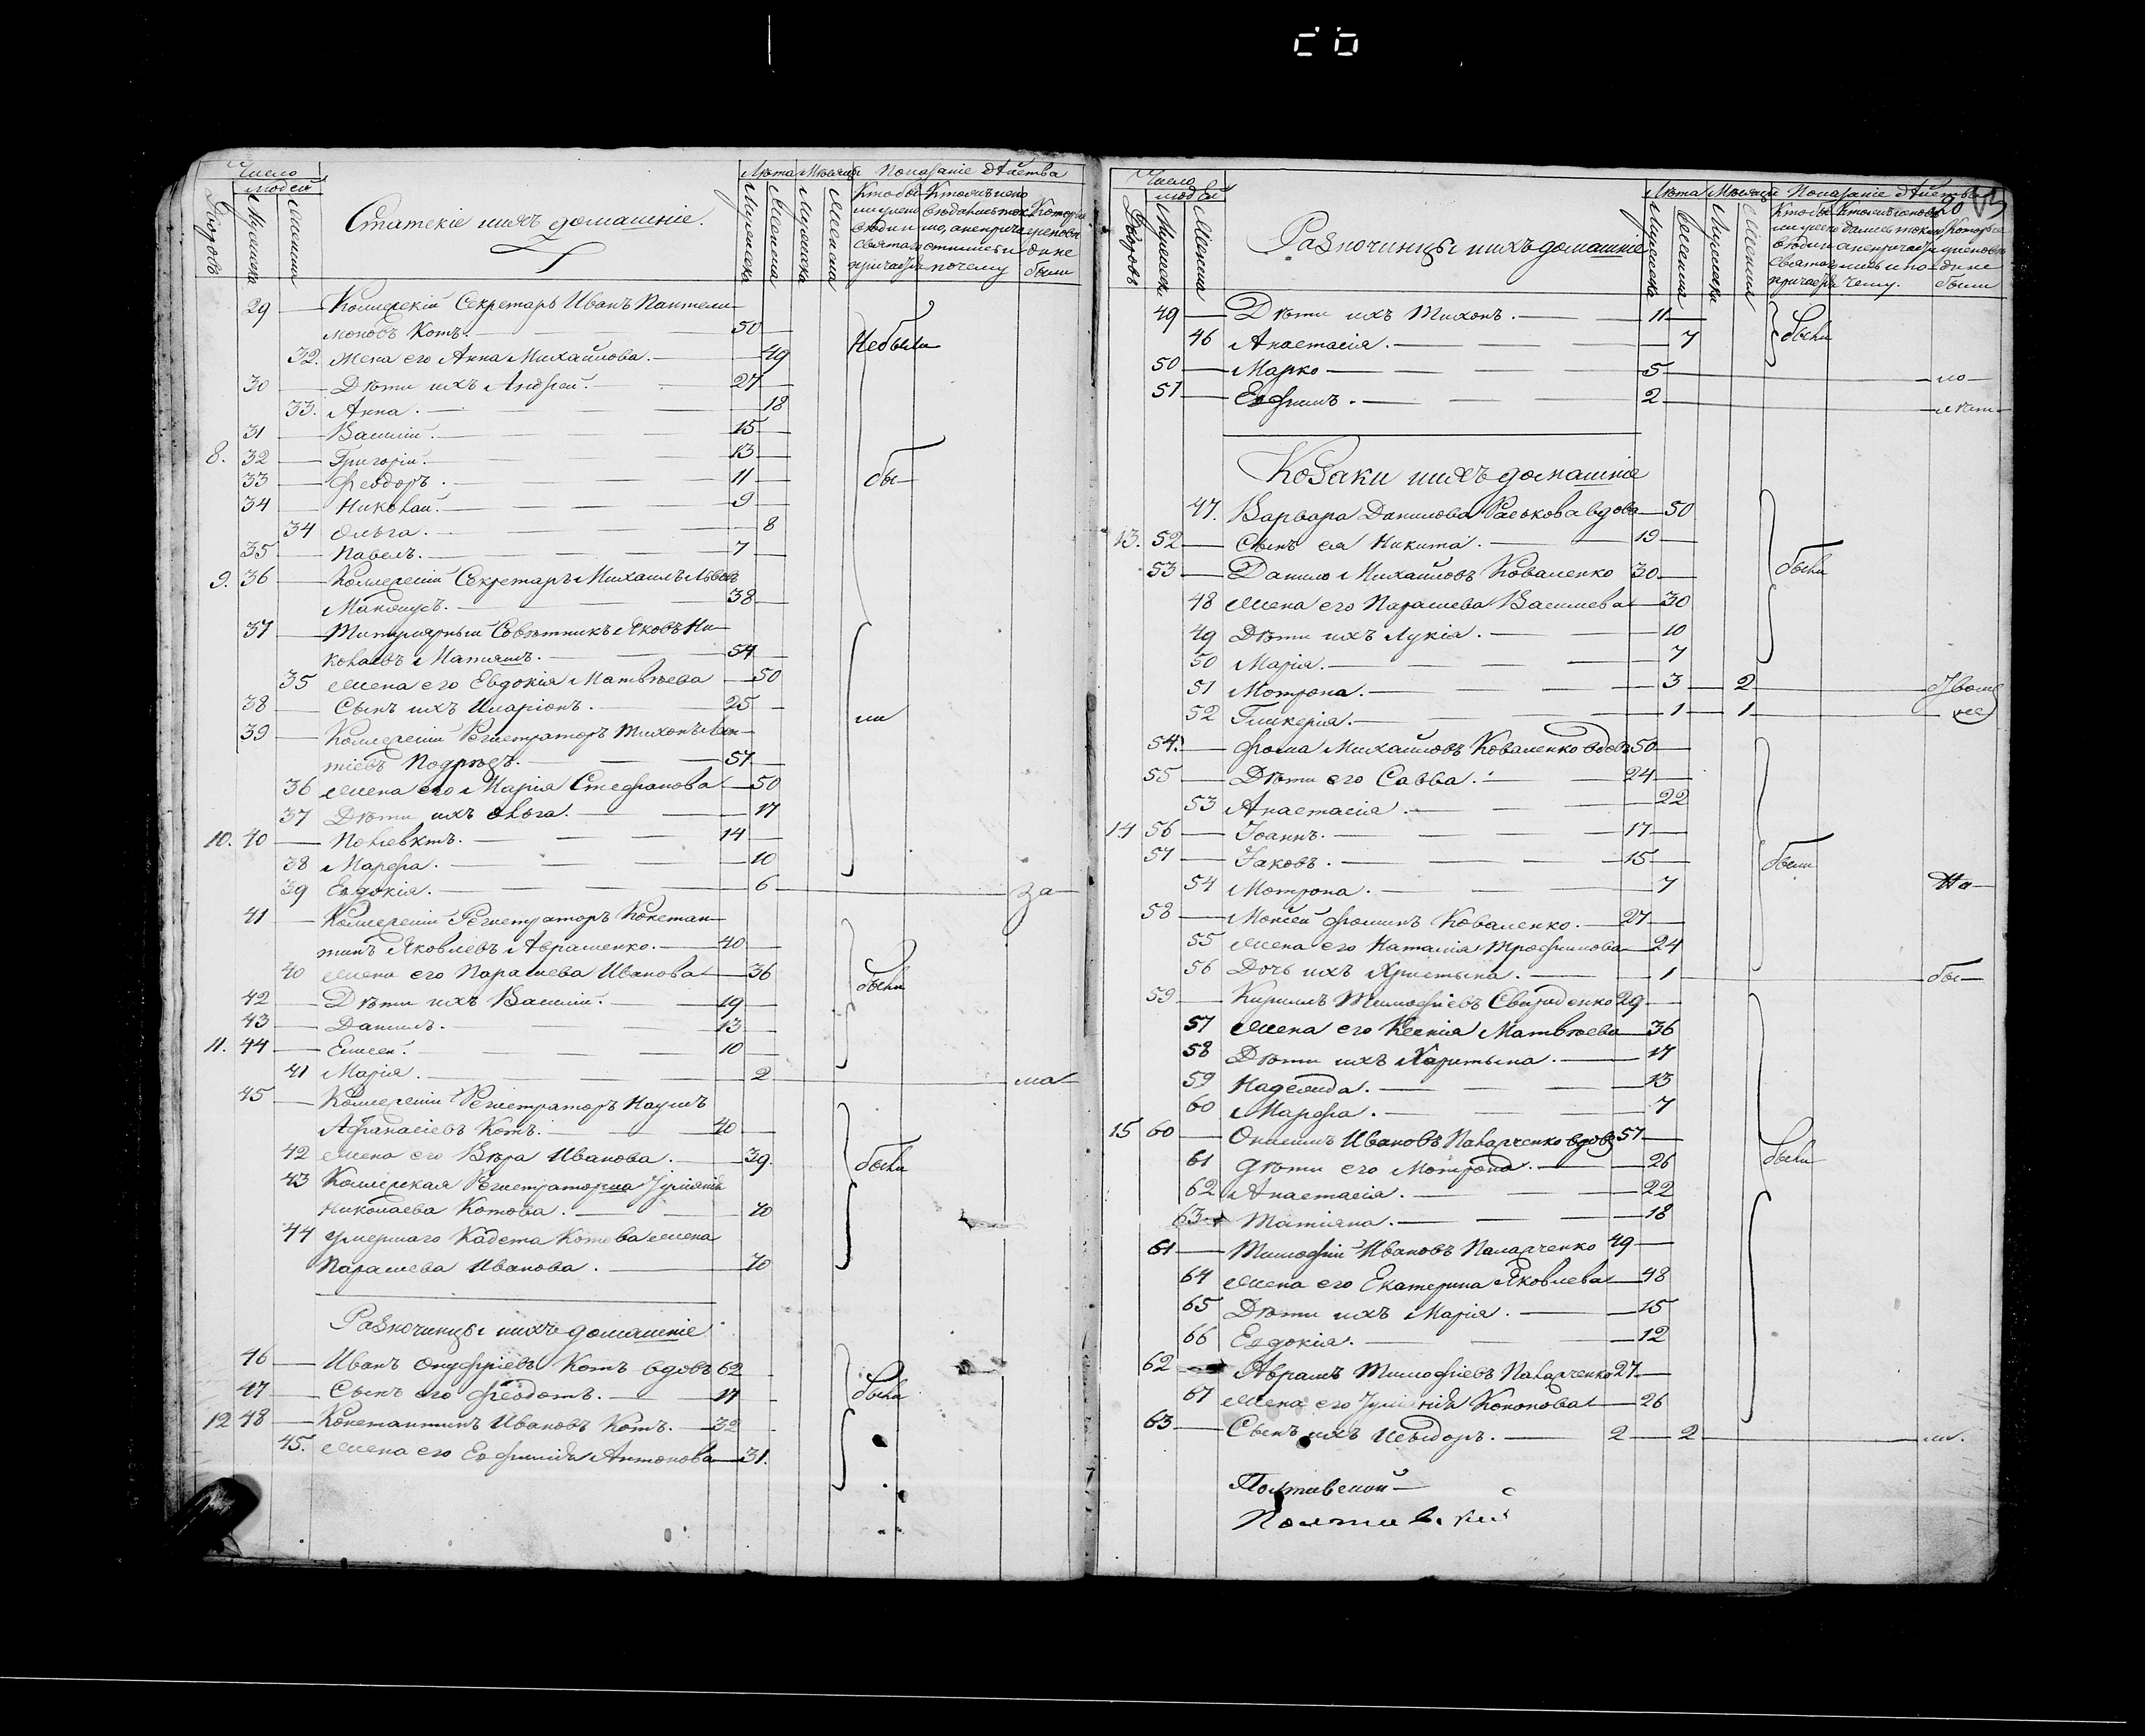 Число
людей
Дворовъ
Мужеска
Женска
Статскіе ипхъ домашніе.
Лѣта Мѣсяцы Показаніе дѣйства
Мужеска
Женска
Мужеска
Женска
почему
были
29 — Коллежскій Секретарь Иванъ Пантели-
моновъ Котъ. — 50
32. жена его Анна Михайлова. — 49
Небыли
30 — Дѣти ихъ Андрей. — 27
33. Анна. — 18
31 — Василій. — 15
8. 32 — Григорій. — 13
33 — Феодоръ. — 11 бы-
34 — Николай. — 9
34 Ольга. — 8
35 — Павелъ. — 7
9. 36 — Коллежскій Секретарь Михаилъ Львовъ
38
37 — Титулярный Совѣтникъ Яковъ Ни-
колаевъ Матяшъ. — 54
35 жена его Евдокія Матвѣева — 50
38 — Сынъ ихъ Иларіонъ. — 25 ли
39 — Коллежскій Регистраторъ Тихонъ Леон-
тіевъ Подрѣзъ. — 57
36 жена его Марія Стефанова — 50
37 Дѣти ихъ Ольга. — 17
10. 40 — Полієвктъ. — 14
38 Марфа. — 10
39 Евдокія. — 6 — за-
41 — Коллежскій Регистраторъ Констан-
тинъ Яковлевъ Аврашенко. — 40
40 жена его Параскева Иванова — 36 были
42 — Дѣти ихъ Василій. — 19
43 — Даніилъ. — 13
11. 44 — Елисей. — 10
41 Марія. — 2 — ма-
45 — Коллежскій Регистраторъ Наумъ
Афанасіевъ Котъ. — 40
42 жена его Вѣра Иванова. — 39. были
43 Коллежская Регистраторша Іуліанія
Николаева Котова. — 70
44 умершаго Кадета Котова жена
Параскева Иванова. — 70
Разночинцы ипхъ домашніе.
46 — Иванъ Онуфріевъ Котъ вдовъ 62
47 — Сынъ его Феодотъ. — 17 были
12 48 — Константинъ Ивановъ Котъ. — 32
45. жена его Евфимія Антонова — 31.
Число
людей
Дворовъ
Мужеска
Женска
Разночинцы ипхъ домашніе
Лѣта Мѣсяцы Показаніе дѣйства
20
Мужеска
Женска
Мужеска
Женска
чему.
были
49 — Дѣти ихъ Тихонъ. — 11
46 Анастасія. — 7 были
50 — Марко — 5 — ло-
51 — Евфимъ. — 2 — лѣт-
Козаки ипхъ домашніе
47. Варвара Данилова Раськова вдова — 50
13. 52 — Сынъ ея Никита. — 19
53 — Данило Михайловъ Коваленко 30 были
48 жена его Параскева Василева — 30
49 Дѣти ихъ Лукія. — 10
50 Марія. — 7
51 Мотрона. — 3 — 2
52 Гликерія. — 1 — 1
54. — Фома Михайловъ Коваленко вдовъ 50
55 — Дѣти его Савва. — 24
53 Анастасія. — 22
14 56 — Іоаннъ. — 17
57 — Іаковъ. — 15 были
54 Мотрона. — 7
58 — Моисей Фоминъ Коваленко. — 27
55 жена его Наталія Трофимова — 24
56 Дочь ихъ Христина. — 1 — бы-
59 — Кирилъ Тимофіевъ Свириденко 29
57 жена его Ксенія Матвѣева — 36
58 Дѣти ихъ Харитына. — 17
59 Надежда. — 13
60 Марфа. — 7
15 60 — Онисимъ Ивановъ Паларченко вдовъ 57
61 дѣти его Мотрона. — 26 были
62 Анастасія. — 22
63 Татіяна. — 18
61 — Тимофій Ивановъ Паларченко 49
64 жена его Екатерина Яковлева — 48
65 Дѣти ихъ Марія. — 15
66 Евдокія. — 12
62 — Аврамъ Тимофіевъ Паларченко 27
67 жена его Іуліанія Кононова — 26
63 — Сынъ ихъ Исидоръ. — 2 — 2 — ли.
Полтавской
Полтавский